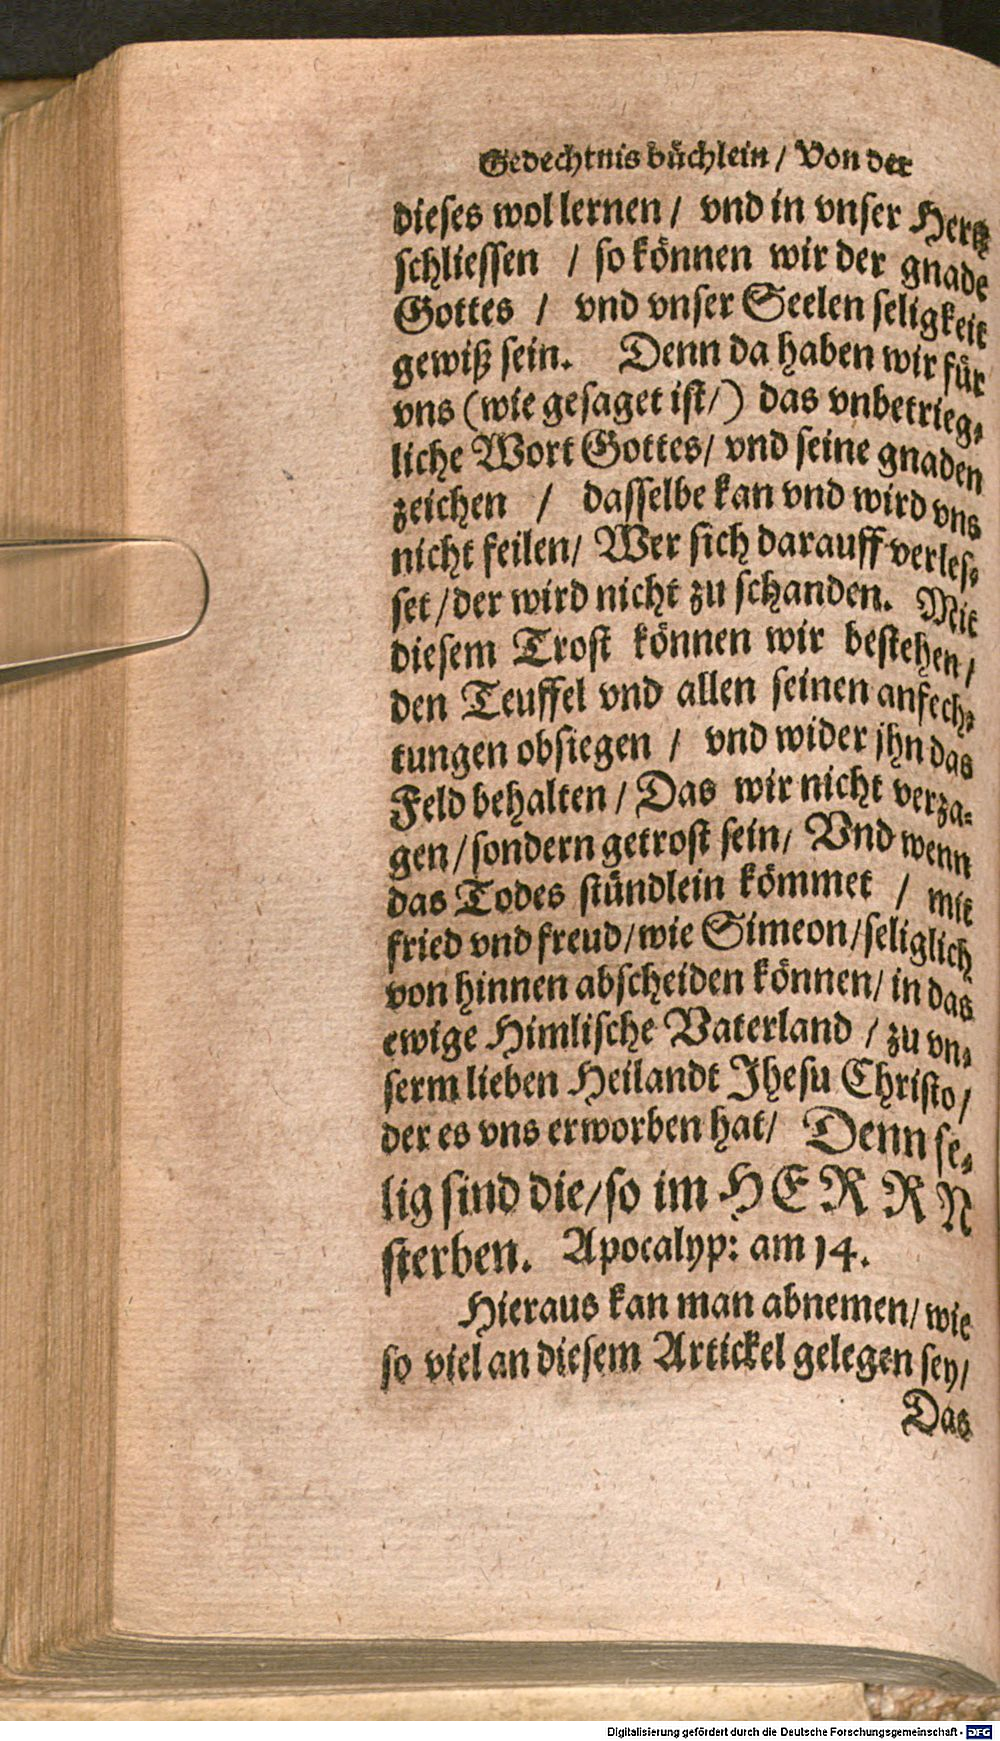 Gedechtnis büchlein / Von der
dieses wol lernen / vnd in vnser Hertz
schliessen / so können wir der gnade
Gottes / vnd vnser Seelen seligkeit
gewiß sein. Denn da haben wir für
vns (wie gesaget ist/) das vnbetrieg⸗
liche Wort Gottes/ vnd seine gnaden
zeichen / dasselbe kan vnd wird vns
nicht feilen/ Wer sich darauff verles⸗
set/der wird nicht zu schanden. Mit
diesem Trost können wir bestehen/
den Teuffel vnd allen seinen anfech⸗
tungen obsiegen / vnd wider jhn das
Feld behalten / Das wir nicht verza⸗
gen/sondern getrost sein/ Vnd wenn
das Todes stündlein kömmet / mit
fried vnd freud/wie Simeon/seliglich
von hinnen abscheiden können/ in das
ewige Himlische Vaterland / zu vn⸗
serm lieben Heilandt Jhesu Christo/
der es vns erworben hat/ Denn se⸗
lig sind die/so im HERRN
sterben. Apocalyp: am 14.
Hieraus kan man abnemen/ wie
so viel an diesem Artickel gelegen sey/
Das
Digitalisierung gefördert durch die Deutsche Forschungsgemeinschaft - DFG